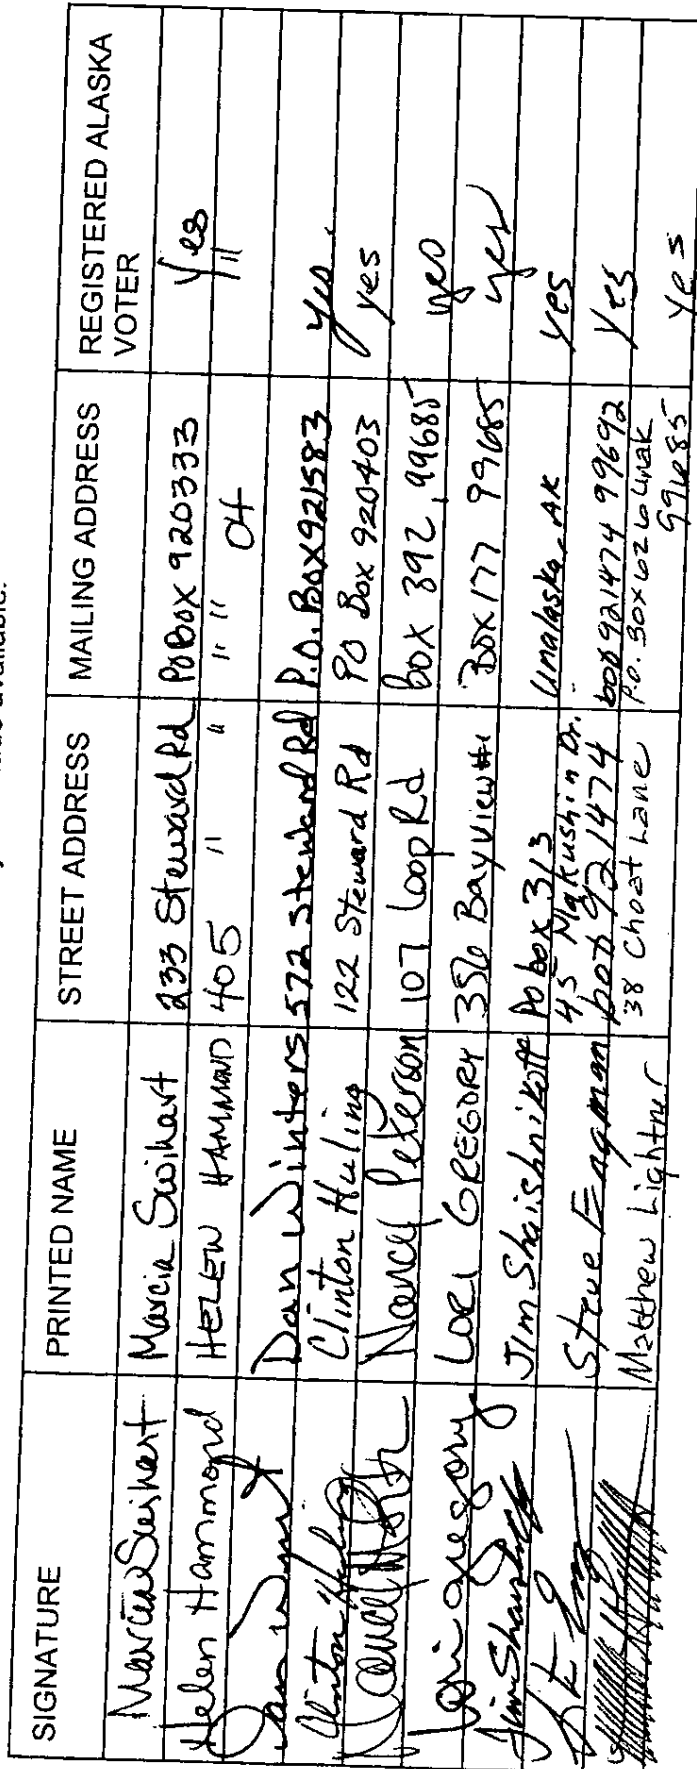 available.
SIGNATURE PRINTED NAME STREET ADDRESS MAILING ADDRESS REGISTERED ALASKA VOTER
Marcia Swihart Marcia Swihart 233 Steward Rd PO Box 920333 Yes
Helen Hammond HELEN HAMMOND 405 " " " " 04 "
Dan Winters 572 Steward Rd P.O. Box 921583 yes.
Clinton Huling Clinton Huling 122 Steward Rd PO Box 920403 yes
Nancy Peterson 107 Loop Rd box 392, 99685 yes
Lori Gregory LORI GREGORY 356 Bayview #1 Box 177 99685 yes
Jim Shaishnikoff Jim Shaishnikoff Po box 313 Unalaska, AK yes
45 Makushin Dr.
Steve Engman box 921474 box 921474 99692 Yes
Matthew Lightner 38 Choat Lane P.O. Box 626 Unak 99685 Yes